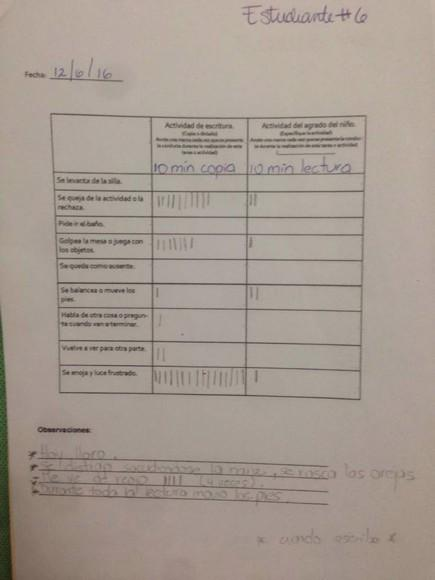 Estudiante #6
Fecha: 12/6/16
Actividad de escritura.
(Copia o dictado)
Anote una marca cada vez que se presente
la conducta durante la realización de esta
tarea o actividad
Actividad del agrado del niño.
(Especifique la actividad)
Anote una marca cada vez que se presente la conduc-
ta durante la realización de esta tarea o actividad
10 min copia
10 min lectura
Se levanta de la silla.
Se queja de la actividad o la
rechaza.
Pide ir al baño.
Golpea la mesa o juega con
los objetos.
Se queda como ausente.
Se balancea o mueve los
pies.
Habla de otra cosa o pregun-
ta cuando van a terminar.
Vuelve a ver para otra parte.
Se enoja y luce frustrado.
Observaciones:
* Hoy lloro.
* Se distrajo sacudiendose la nariz, se rasca las orejas
- Me ve de reojo IIII (4 veces).
- Durante toda la lectura movio los pies.
* cuando escribe *